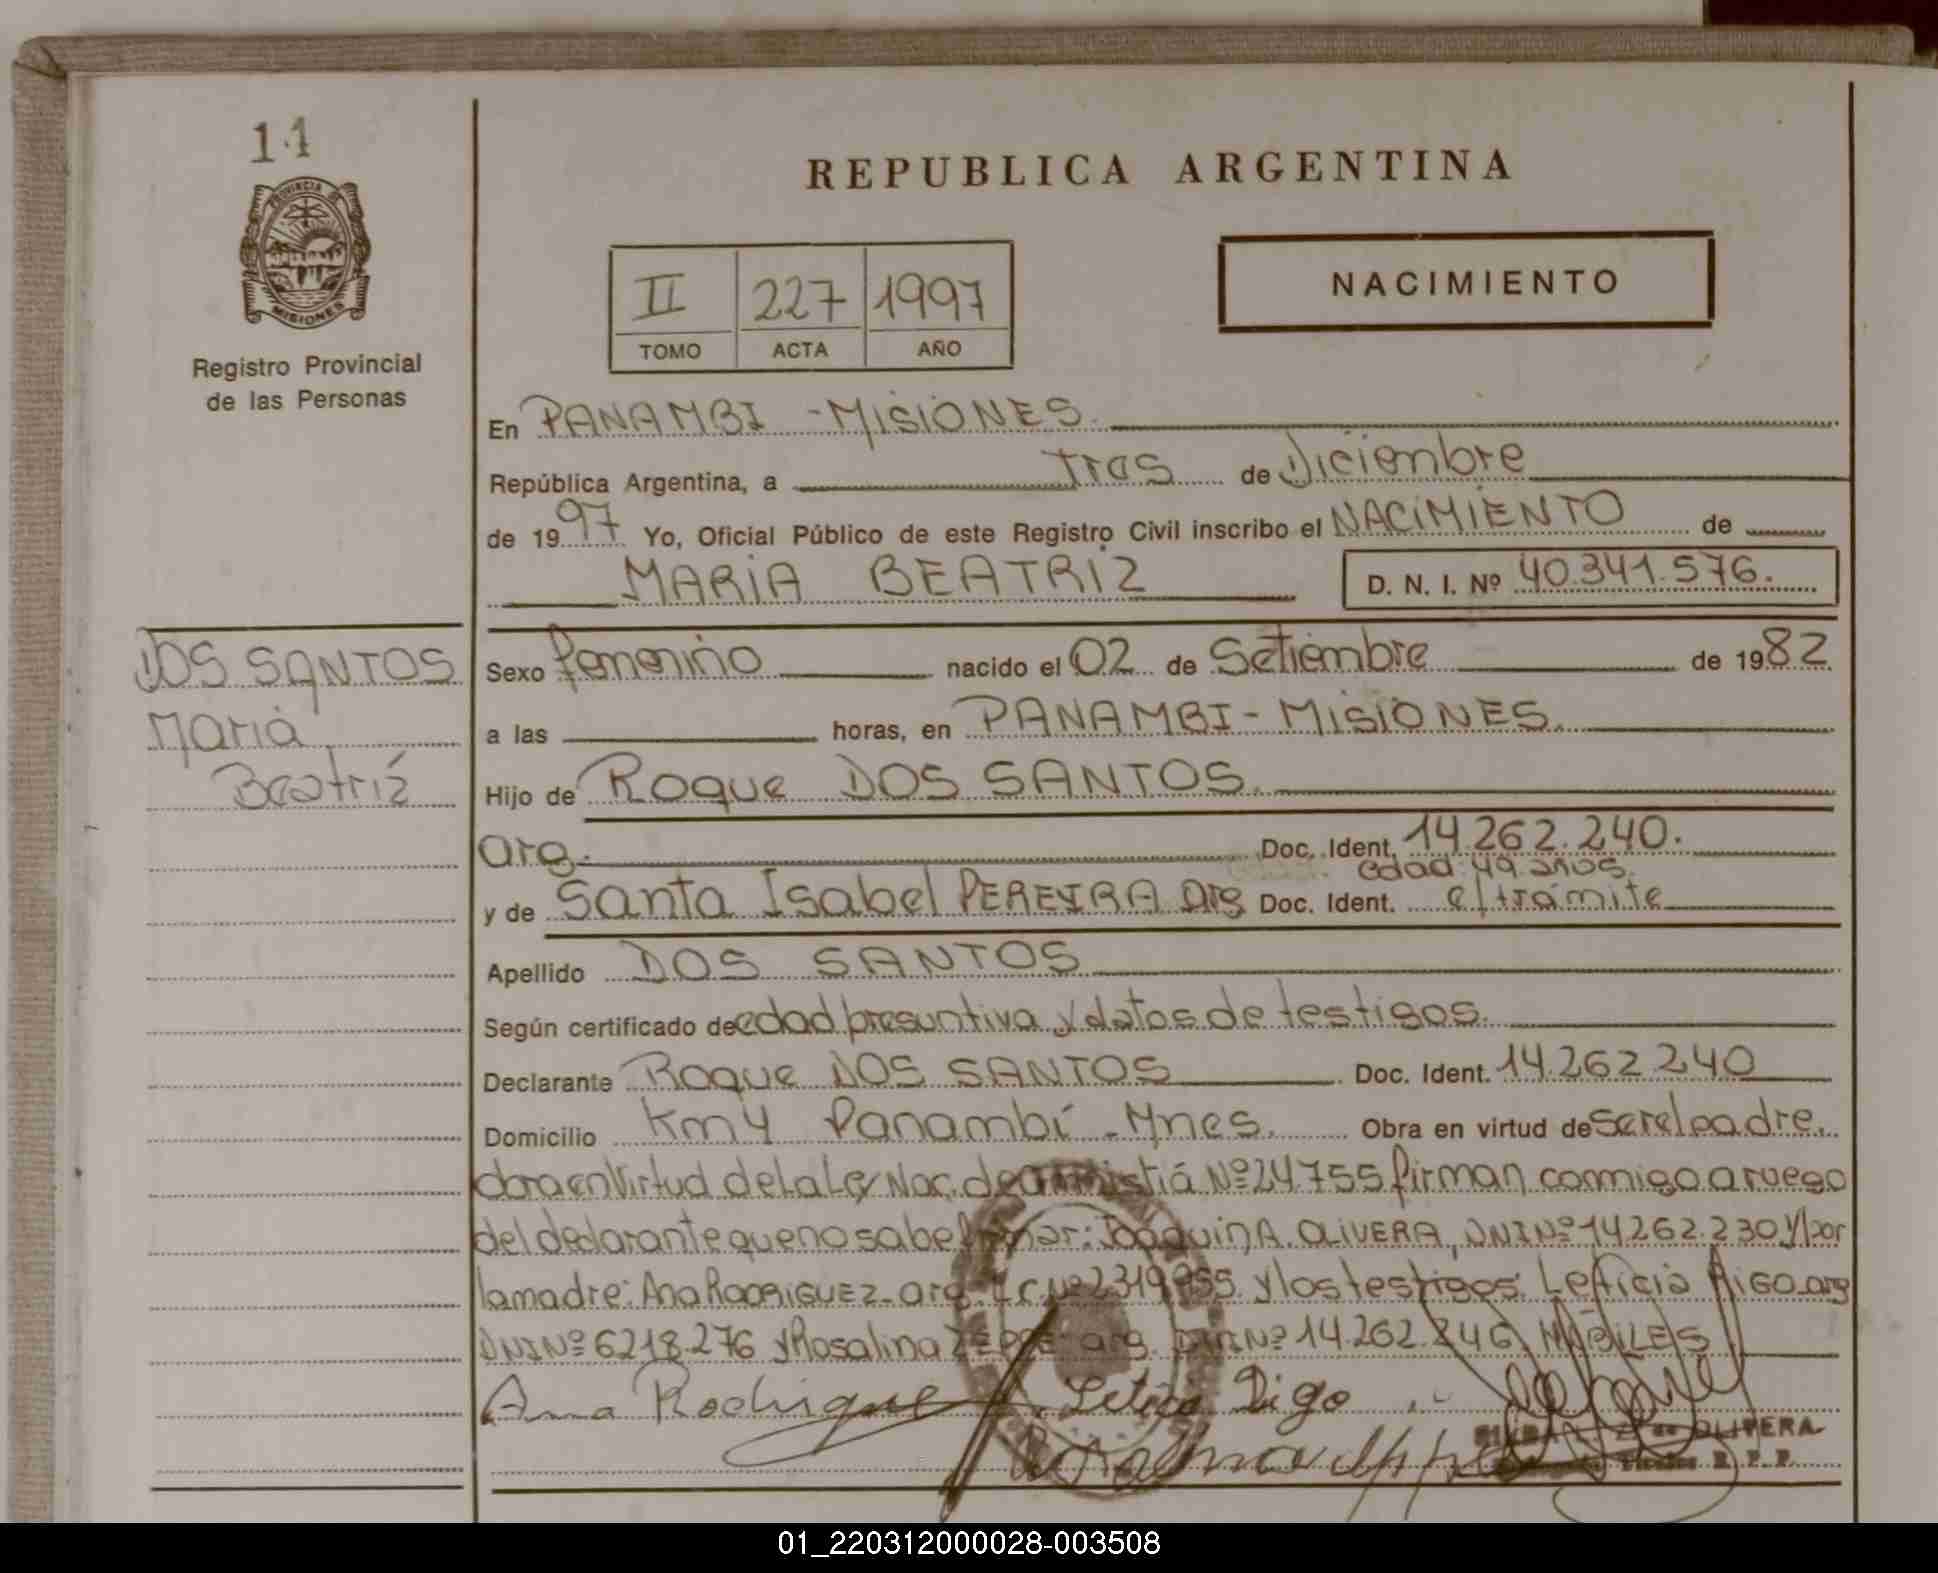 14
PROVINCIA DE
MISIONES
Registro Provincial
de las Personas
REPUBLICA ARGENTINA
II 227 1997
TOMO ACTA AÑO
NACIMIENTO
En PANAMBI - MISIONES.
República Argentina, a tres de Diciembre
de 1997 Yo, Oficial Público de este Registro Civil inscribo el NACIMIENTO de
MARIA BEATRIZ D. N. I. Nº 40.341.576.
DOS SANTOS
Maria
Beatriz
Sexo femenino nacido el 02 de Setiembre de 1982
a las horas, en PANAMBI - MISIONES.
Hijo de Roque DOS SANTOS.
arg. Doc. Ident. 14.262.240.
edad: 49 años.
y de Santa Isabel PEREYRA arg Doc. Ident. e/trámite
Apellido DOS SANTOS
Según certificado de edad presuntiva y datos de testigos.
Declarante Roque DOS SANTOS Doc. Ident. 14.262.240
Domicilio Km 4 Panambí - Mnes. Obra en virtud de ser el padre.
obra en virtud de la Ley Nac. de amnistiá Nº 24.755 firman conmigo a ruego
del declarante que no sabe firmar: Joaquin A. OLIVERA, DNI Nº 14.262.230 y por
la madre: Ana RODRIGUEZ - arg. L.C. Nº 2319.955 y los testigos: Leticia RIGO arg
DNI Nº 6218.276 y Rosalina arg. DNI Nº 14.262.246
Ana Rodrigue Leticia Rigo
Rosalina
OLIVERA
R. P. P.
01_220312000028-003508